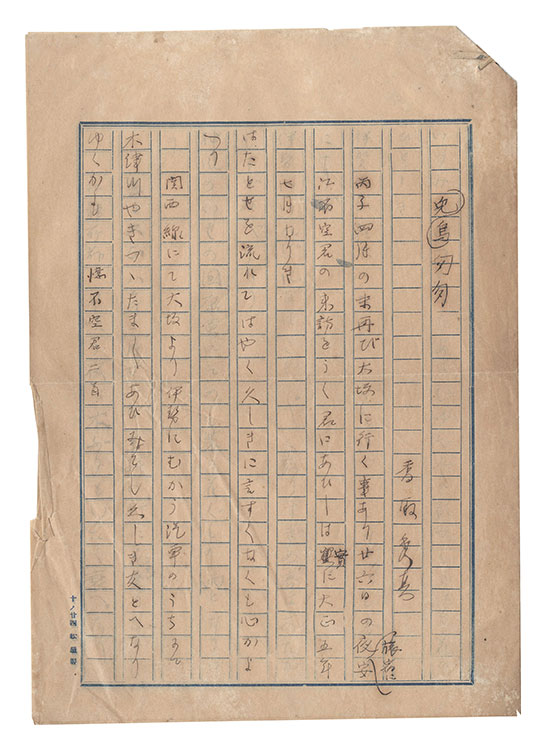 兎烏匆匆
香取秀真
丙子四月の末再び大坂に行く事あり廿六日の夜安
江不空君の来訪をうく君にあひしは実に大正五年
七月なりき
はたとせを流れてはやく久しきに言すくなくも心かよ
へり
関西線にて大坂より伊勢にむかう汽車のうちにて
木津川やきづ たま あひ し 友と へ り
ゆくかも
懐不空君二首
十ノ廿四 松屋製